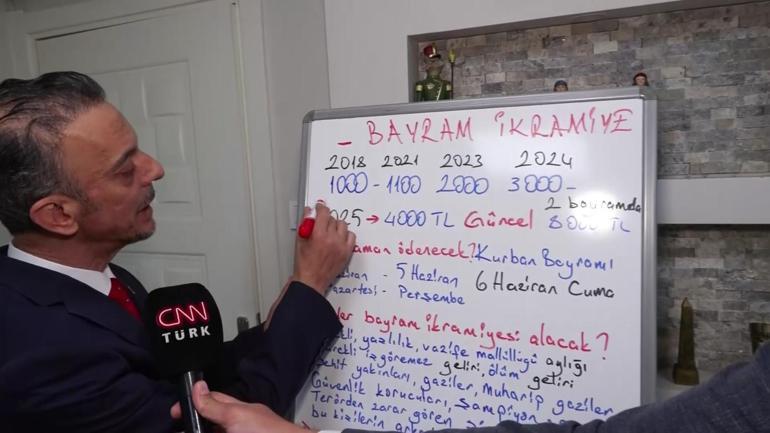 _ BAYRAM İKRAMİYE
2018 2021 2023 2024
1000 - 1100 2000 3000 -
025 → 4000 TL Güncel 2 bayramda 8000 TL
aman ödenecek? Kurban Bayramı
- 5 Haziran 6 Haziran Cuma
- Perşembe
ler bayram ikramiyesi alacak?
yazlilik, vazife mallüllügü aylığı
iş göremez geliri, ölüm geliri
yakınları, gaziler, Muharip gaziler
Güvenlik korucuları, şampiyon
Terörden zarar gören
bu kişilerin
CNN
TÜRK